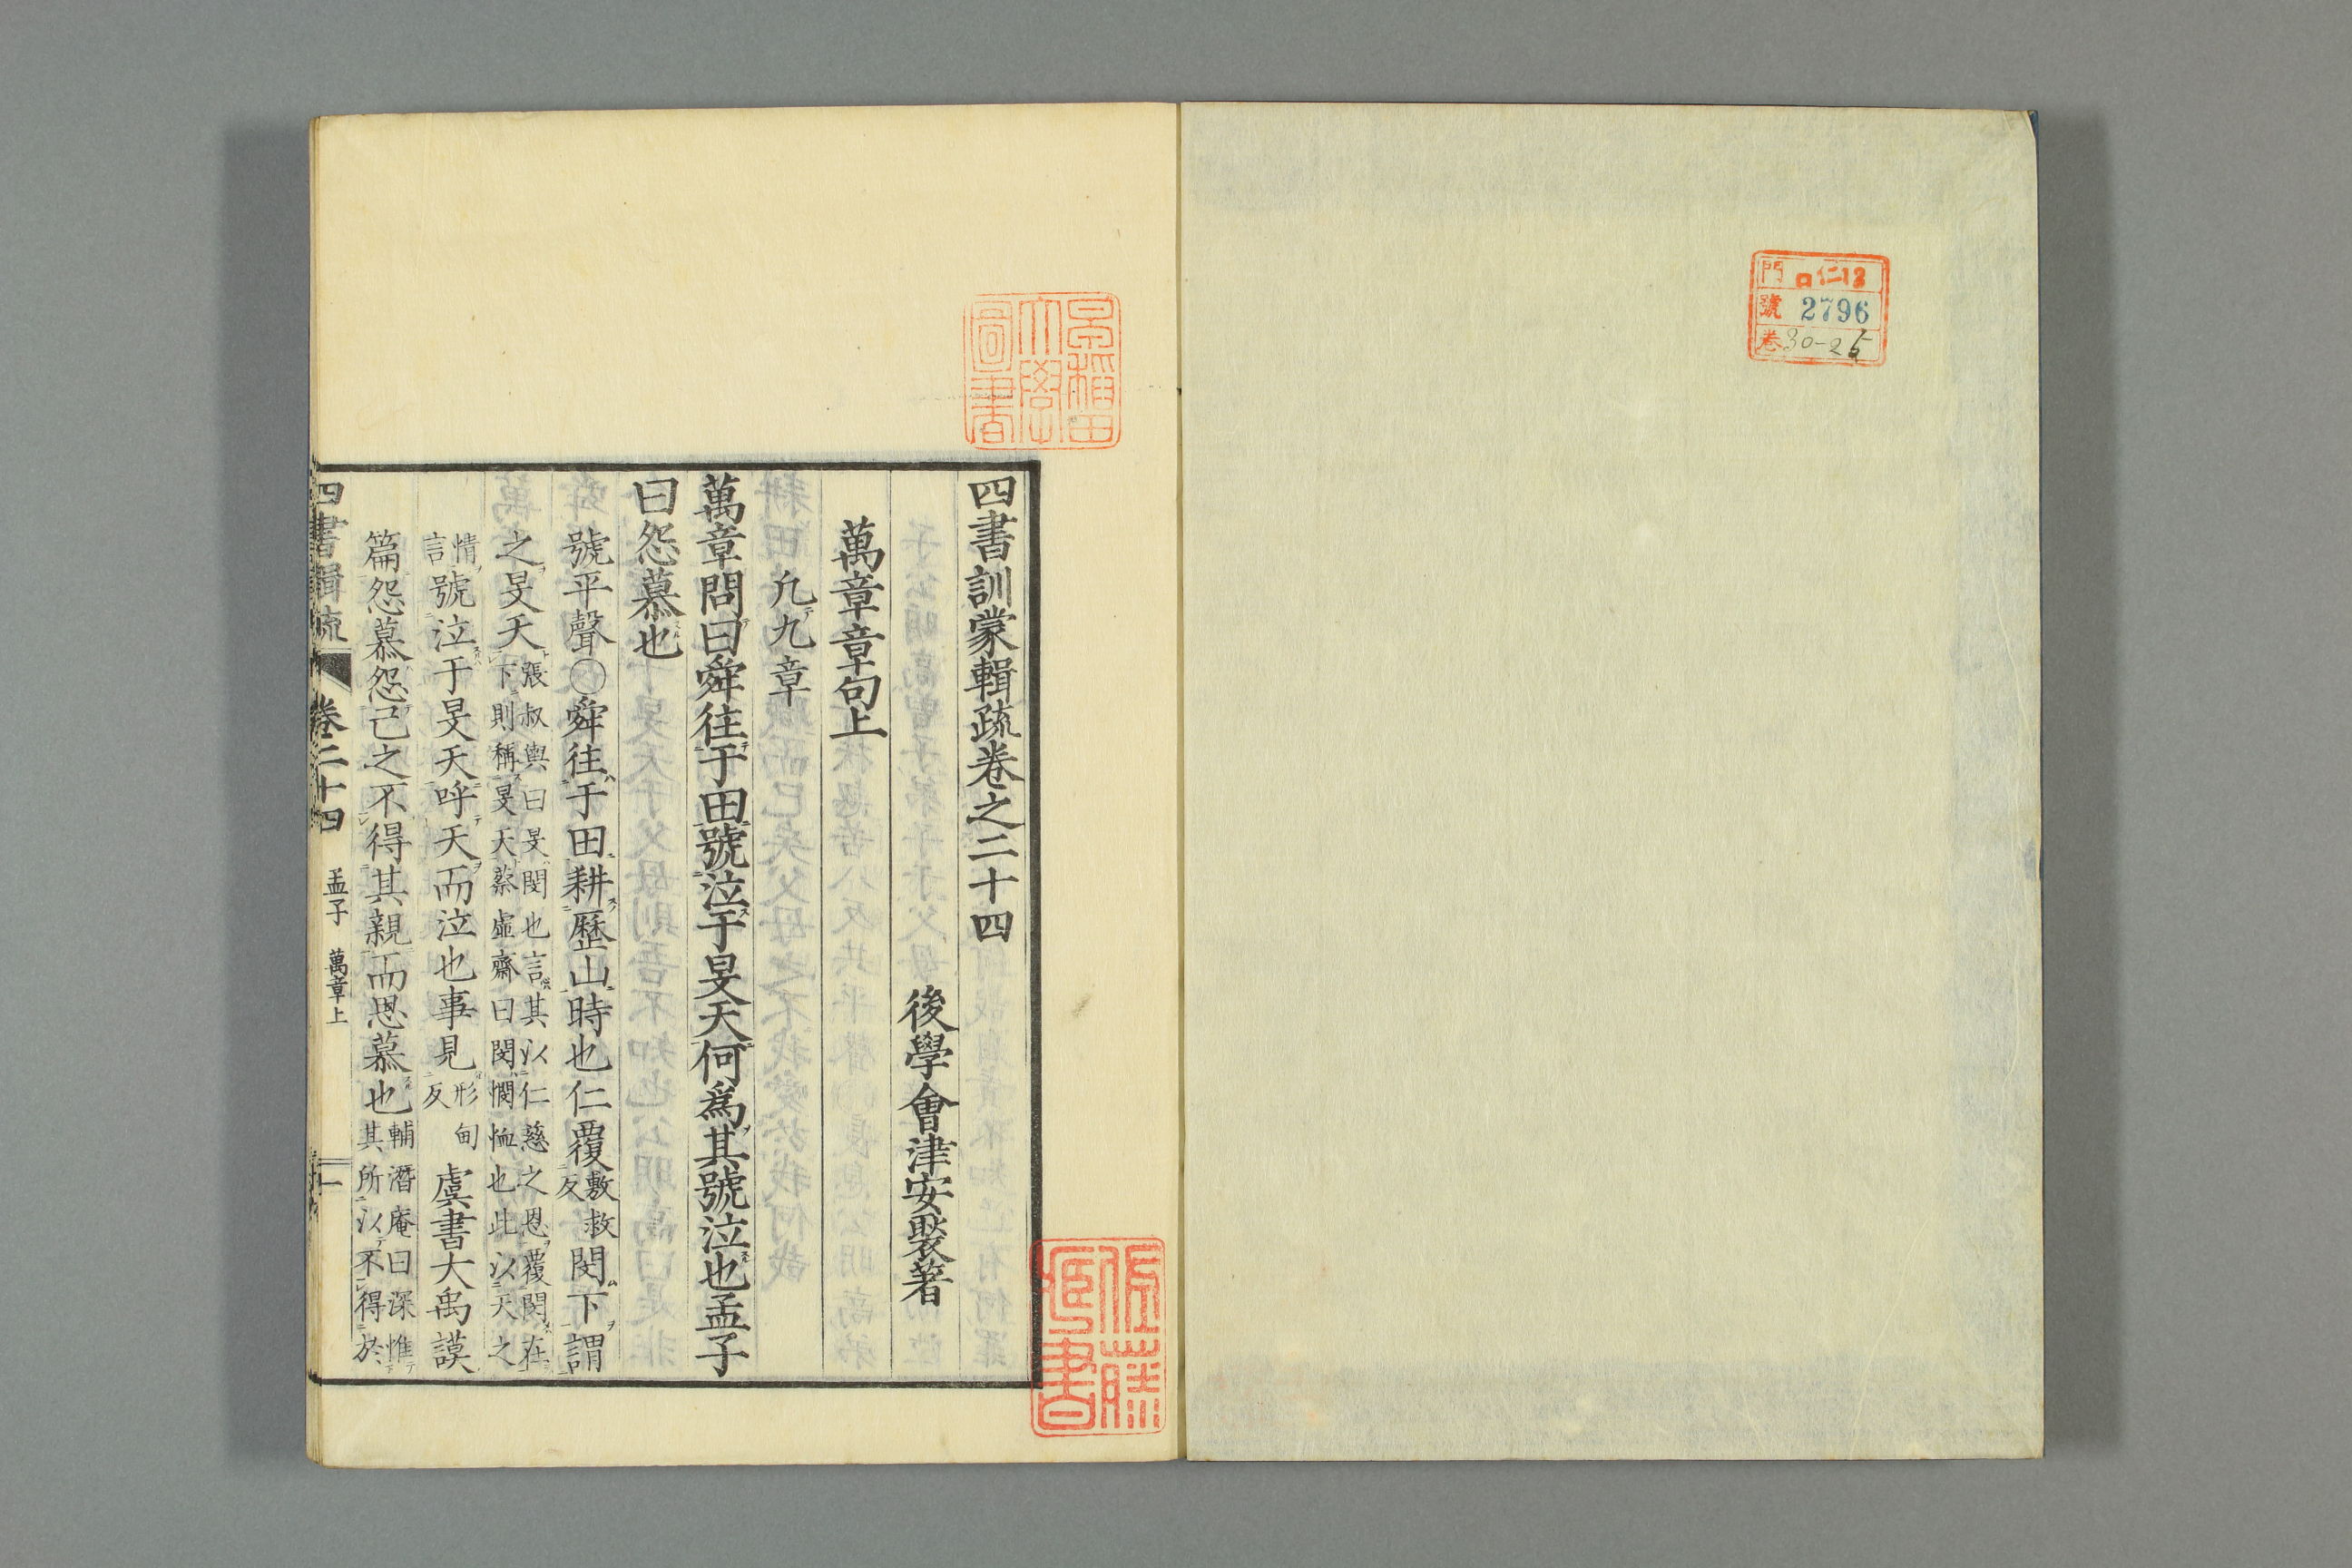 門 ロ仁13
號 2796
卷 30-25
早稲田
大學
圖書
四書訓蒙輯疏卷之二十四
後學會津安褧著
萬章章句上
凢九章
萬章問曰舜往于田號泣于旻天何爲其號泣也孟子
曰怨慕也
號平聲○舜往于田耕歷山時也仁覆敷救反閔下謂
之旻天張叔輿曰旻閔也言其以仁慈之恩覆閔在下則稱旻天蔡虛齋曰閔憫恤也此以天之
情言號泣于旻天呼天而泣也事見形甸反虞書大禹謨
篇怨慕怨己之不得其親而思慕也輔潛庵曰深惟其所以不得於
四書輯疏 卷二十四 孟子 萬章上 一
佐藤